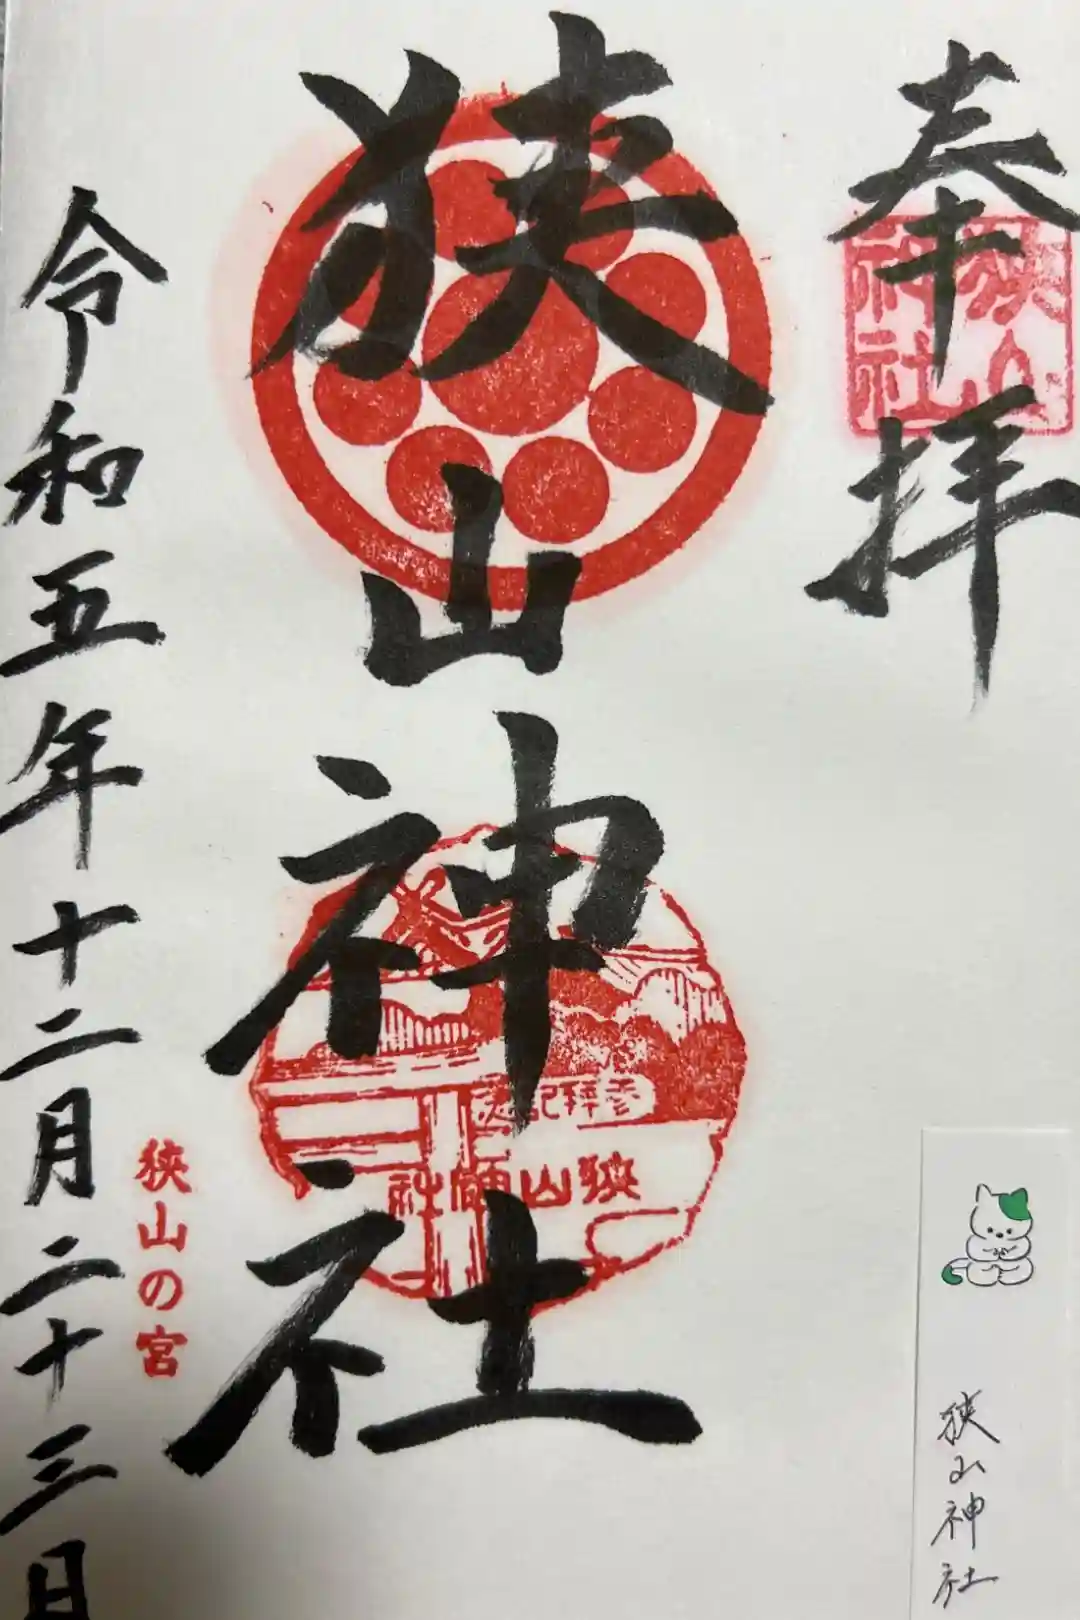 奉拝
狭山神社
狭山神社
参拝記念
狭山神社
狭山の宮
令和五年十二月二十三日
狭山神社